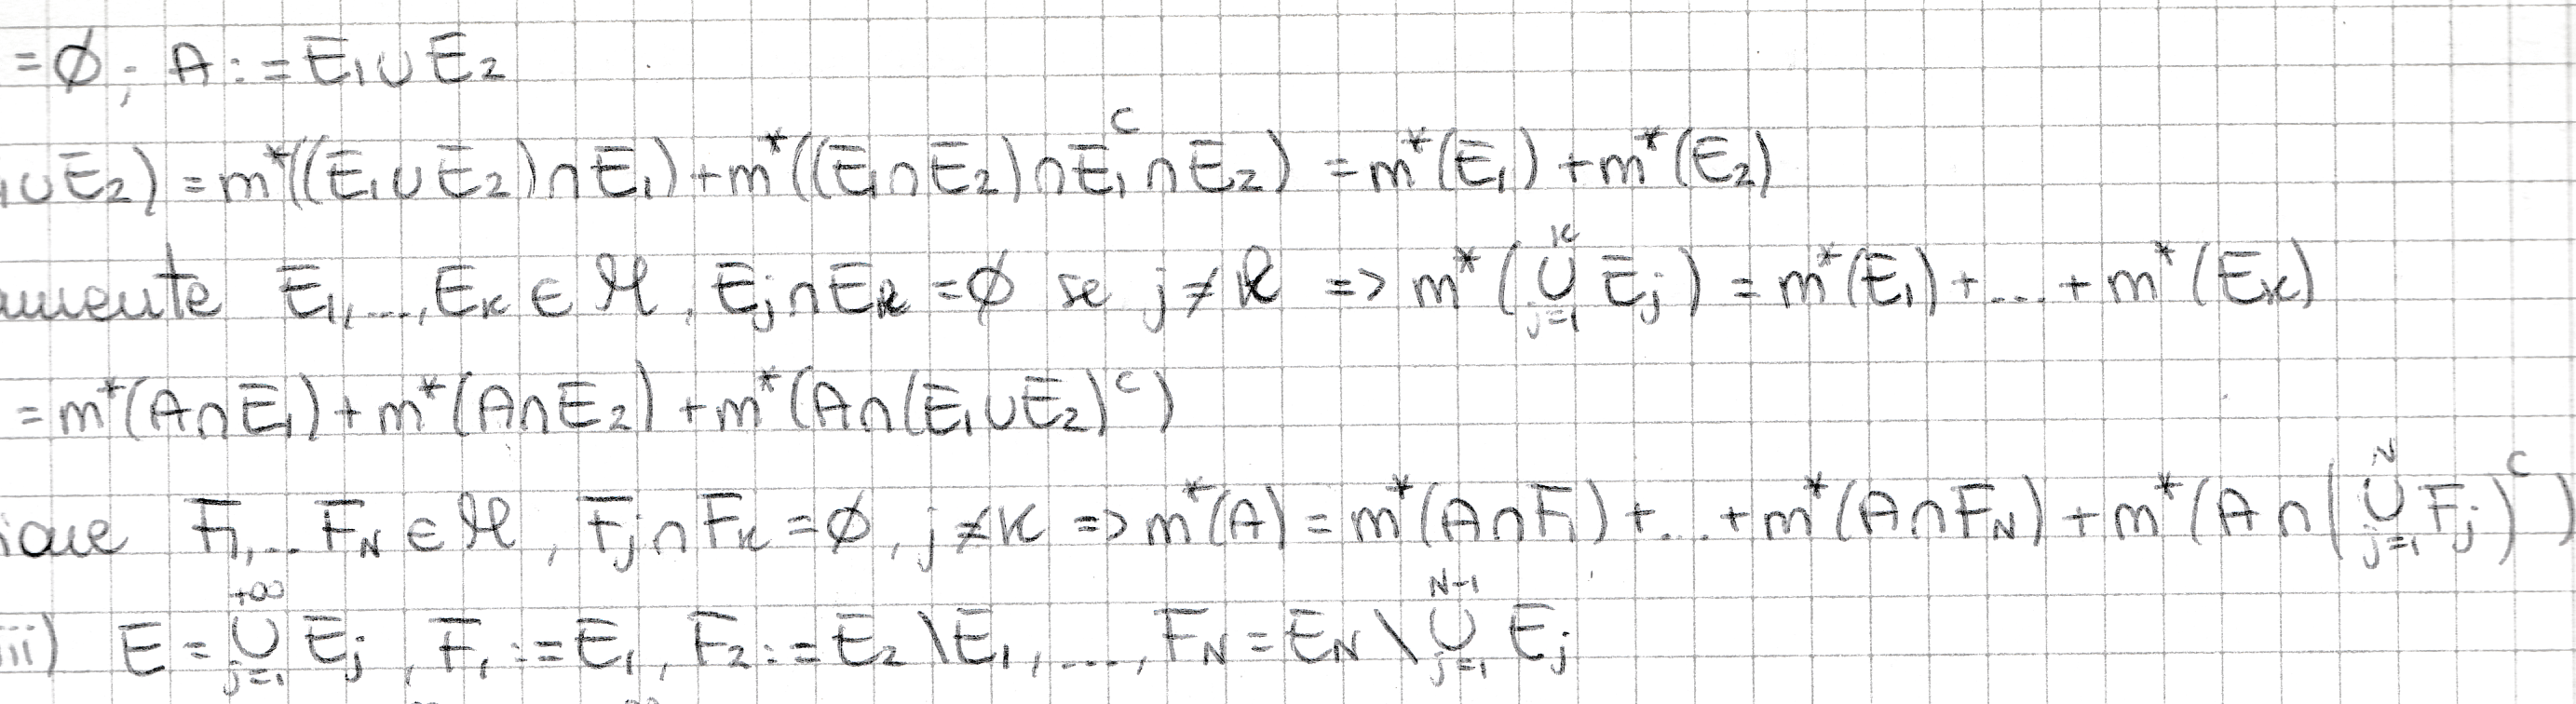 = ∅; A := E₁ ∪ E₂
∪ E₂) = m*((E₁ ∪ E₂) ∩ E₁) + m*((E₁ ∩ E₂) ∩ E₁ᶜ ∩ E₂) = m*(E₁) + m*(E₂)
amente E₁, ..., E_K ∈ ℳ, E_j ∩ E_k = ∅ se j ≠ k => m*(⋃_{j=1}^{K} E_j) = m*(E₁) + ... + m*(E_K)
= m*(A ∩ E₁) + m*(A ∩ E₂) + m*(A ∩ (E₁ ∪ E₂)ᶜ)
F₁, ... F_N ∈ ℳ, F_j ∩ F_K = ∅, j ≠ K => m*(A) = m*(A ∩ F₁) + ... + m*(A ∩ F_N) + m*(A ∩ (⋃_{j=1}^{N} F_j)ᶜ)
iii) E = ⋃_{j=1}^{+∞} E_j, F₁ := E₁, F₂ := E₂ \ E₁, ..., F_N = E_N \ ⋃_{j=1}^{N-1} E_j